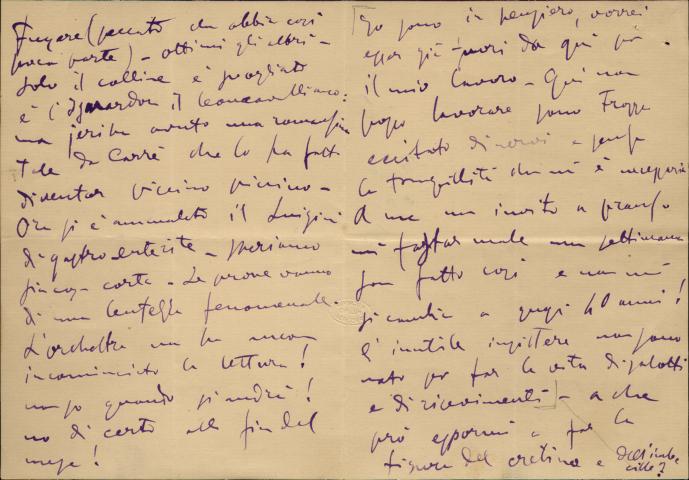 Fugère (peccato che abbia così
poca parte) - ottimi gli altri -
solo il colline è
è l' il leoncavalliano:
ma ieri ha avuto una romanzina
tale da Carré che lo ha fatto
diventar piccino piccino -
Ora si è ammalato il Luigini
di gastro enterite - speriamo
sia cosa corta - Le prove vanno
di una lentezza fenomenale
L'orchestra non ha ancora
incominciato la lettura!
non so quando si andrà!
no di certo alla fin del
mese!
Io sono in pensiero, vorrei
esser già fuori da qui per
il mio lavoro - Qui non
posso lavorare sono troppo
eccitato di nervi e senza
la tranquillità che mi è necessaria
A me un invito a pranzo
mi fa star male una settimana
son fatto così e non mi
si cambia a quasi 40 anni!
È inutile insistere non sono
nato per far la vita di salotti
e di ricevimenti - a che
prò espormi a far la
figura del cretino e dell'imbe
cille?